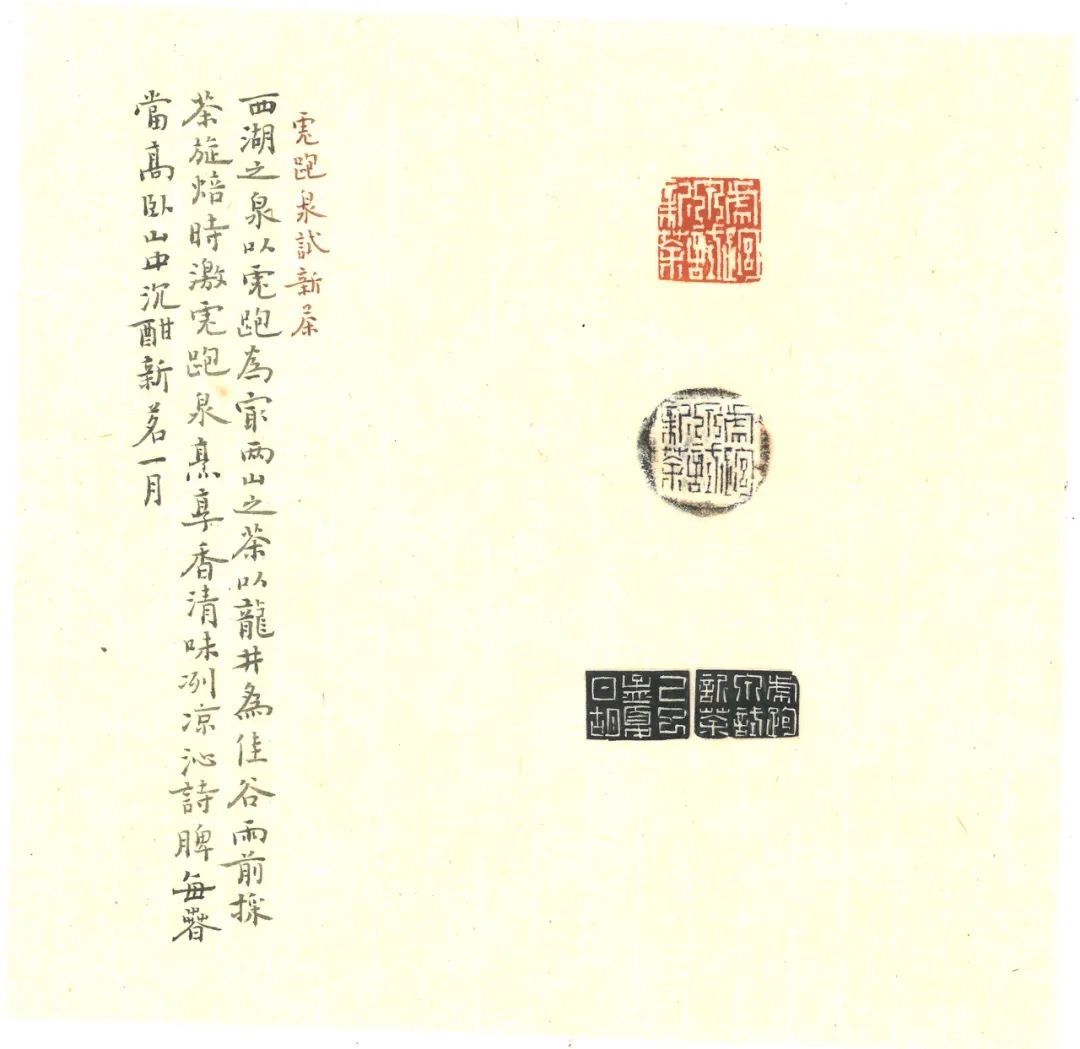 虎跑泉試新茶
虎跑泉試新茶
虎跑泉試新茶
孟夏
虎跑泉試新茶
西湖之泉以虎跑為㝡兩山之茶以龍井為佳谷雨前採
茶旋焙時激虎跑泉烹享香清味冽凉沁詩脾每春
當高臥山中沉酣新茗一月